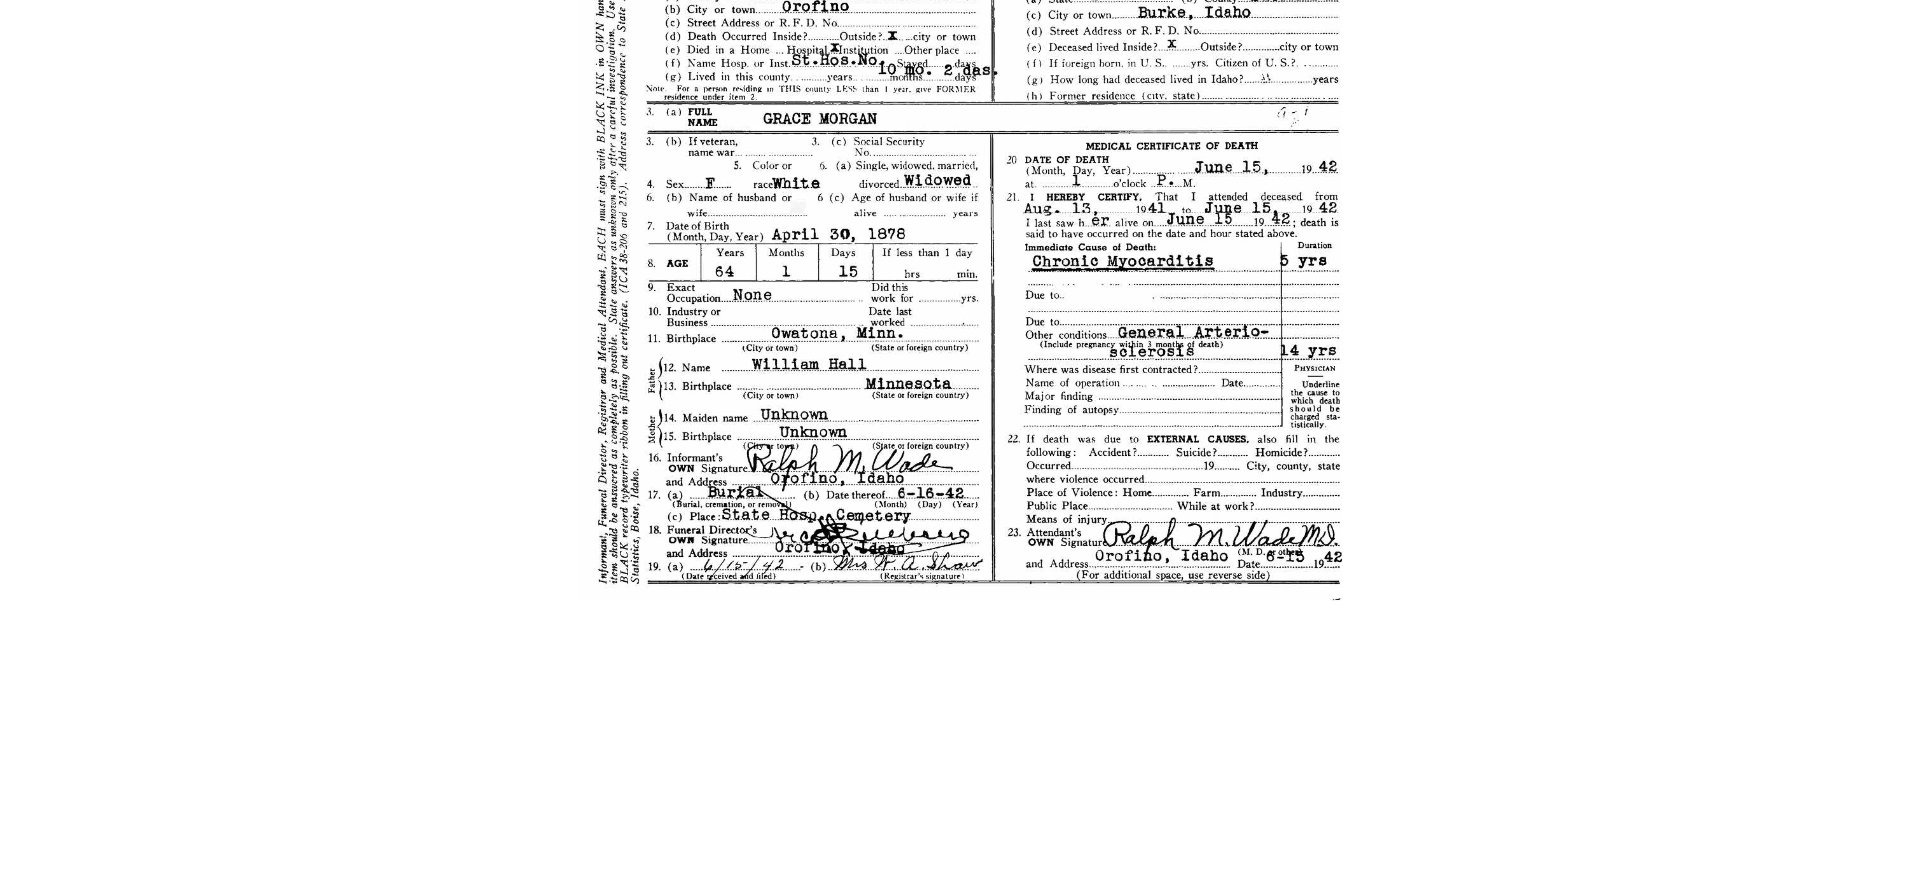 (b) City or town Orofino
(c) Street Address or R. F. D. No.
(d) Death Occurred Inside? Outside? X city or town
(e) Died in a Home ... Hospital X Institution ... Other place ....
(f) Name Hosp. or Inst. St.Hos.No. Stayed days
(g) Lived in this county years 10 mo. 2 das. months days
Note. For a person residing in THIS county LESS than 1 year, give FORMER
residence under item 2.
(c) City or town Burke, Idaho
(d) Street Address or R. F. D. No.
(e) Deceased lived Inside? X Outside? city or town
(f) If foreign born, in U. S. yrs. Citizen of U. S.?
(g) How long had deceased lived in Idaho? years
(h) Former residence (city, state)
3. (a) FULL
NAME GRACE MORGAN
3. (b) If veteran, 3. (c) Social Security
name war No.
5. Color or 6. (a) Single, widowed, married,
4. Sex F race White divorced Widowed
6. (b) Name of husband or 6 (c) Age of husband or wife if
wife alive years
7. Date of Birth
(Month, Day, Year) April 30, 1878
Years Months Days If less than 1 day
8. AGE 64 1 15 hrs min.
9. Exact Did this
Occupation None work for yrs.
10. Industry or Date last
Business worked
11. Birthplace Owatona, Minn.
(City or town) (State or foreign country)
Father
12. Name William Hall
13. Birthplace Minnesota
(City or town) (State or foreign country)
Mother
14. Maiden name Unknown
15. Birthplace Unknown
(City or town) (State or foreign country)
16. Informant's
OWN Signature Ralph M. Wade
and Address Orofino, Idaho
17. (a) Burial (b) Date thereof 6-16-42
(Burial, cremation, or removal) (Month) (Day) (Year)
(c) Place: State Hosp. Cemetery
18. Funeral Director's
OWN Signature
and Address Orofino, Idaho
19. (a) 6/15/42 - (b) Mrs W. A. Shaw
(Date received and filed) (Registrar's signature)
MEDICAL CERTIFICATE OF DEATH
20 DATE OF DEATH
(Month, Day, Year) June 15, 19 42
at 1 o'clock P. M.
21. I HEREBY CERTIFY, That I attended deceased from
Aug. 13, 19 41 to June 15, 19 42
I last saw h er alive on June 15 19 42; death is
said to have occurred on the date and hour stated above.
Immediate Cause of Death: Duration
Chronic Myocarditis 5 yrs
Due to
Due to
Other conditions General Arterio-
(Include pregnancy within 3 months of death)
sclerosis 14 yrs
Where was disease first contracted?
Name of operation Date
Major finding
Finding of autopsy
PHYSICIAN
Underline
the cause to
which death
should be
charged sta-
tistically.
22. If death was due to EXTERNAL CAUSES, also fill in the
following: Accident? Suicide? Homicide?
Occurred 19 City, county, state
where violence occurred
Place of Violence: Home Farm Industry
Public Place While at work?
Means of injury
23. Attendant's
OWN Signature Ralph M. Wade M.D.
(M. D. or other)
Orofino, Idaho 6-15
and Address Date 19 42
(For additional space, use reverse side)
Informant, Funeral Director, Registrar and Medical Attendant, EACH must sign with BLACK INK in OWN
item should be answered as completely as possible. State answers as unknown only after a careful investigation. Use
BLACK record typewriter ribbon in filling out certificate. (ICA 38-206 and 215). Address correspondence to State
Statistics, Boise, Idaho.